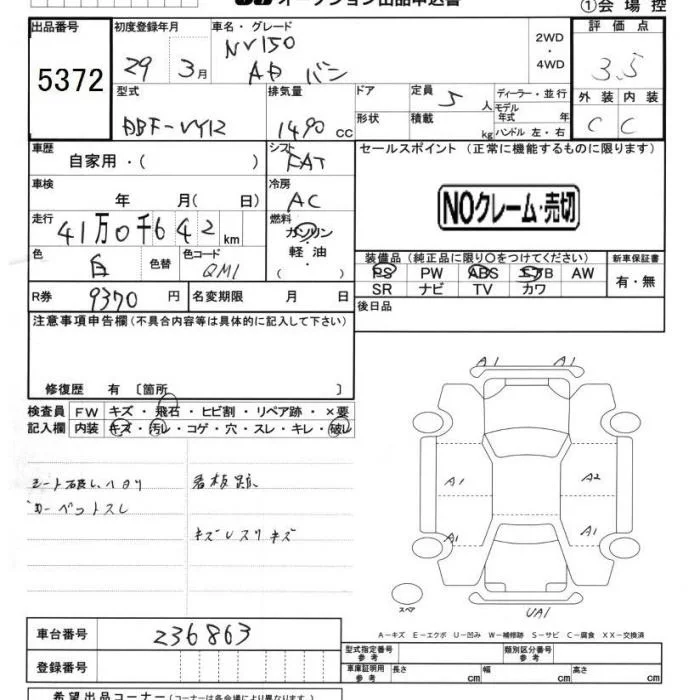 オークション出品申込書
①会場控
出品番号 初度登録年月 車名・グレード 評価点
5372
29 3月
NV150
AD バン
2WD
・
4WD
3.5
型式 排気量 ドア 定員 5人 ディーラー・並行
外装 内装
DBF-VY12 1490 cc
形状 積載 kg モデル年式 年
ハンドル 左・右
C C
車歴 自家用・( )
シフト FAT
セールスポイント (正常に機能するものに限ります)
車検 年 月( 日)
冷房 AC
NOクレーム・売切
走行 41万0千642km
燃料 ガソリン・軽油・( )
色 白 色替 色コード QM1
装備品(純正品に限り○をつけてください) 新車保証書
PS PW ABS エアB AW
SR ナビ TV カワ
有・無
R券 9370円 名変期限 月 日
後日品
注意事項申告欄(不具合内容等は具体的に記入して下さい)
修復歴 有 〔箇所 〕
検査員 FW キズ・飛石・ヒビ割・リペア跡・×要
記入欄 内装 キズ・汚レ・コゲ・穴・スレ・キレ・破レ
シート破レハリ
カーペットスレ
看板跡
キズUスリキズ
A1 A1
A1 A2
A1 A1
スペア
UA1
A-キズ E-エクボ U-凹み W-補修跡 S-サビ C-腐食 XX-交換済
車台番号 236863
型式指定番号 参考 類別区分番号 参考
登録番号
車庫証明用 参考 長さ cm 幅 cm 高さ cm
希望出品コーナー(コーナーは各会場により異なります。)